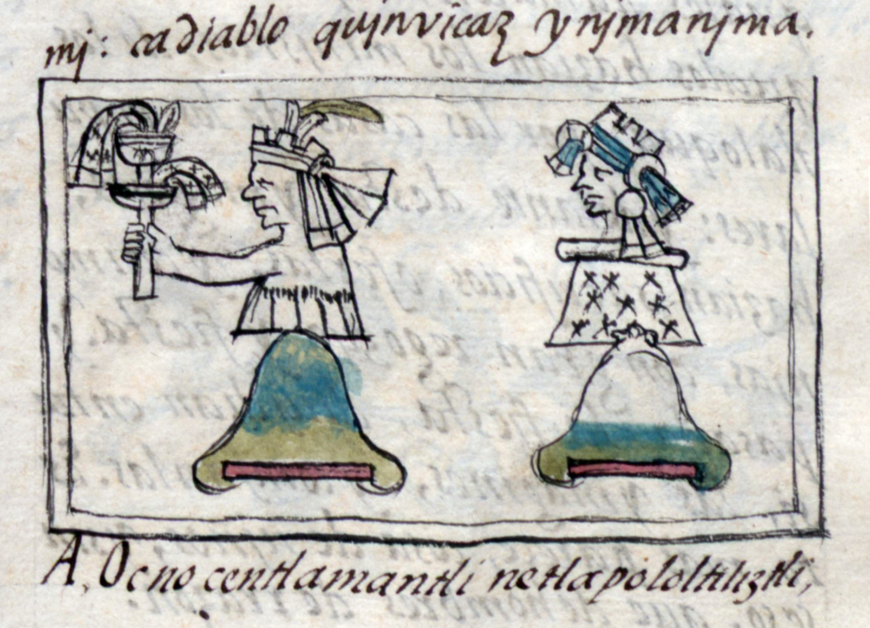 mj: ca diablo qujnvicaz ynjmanjma.
A, Oc no centlamantli netlapololtiliztli,